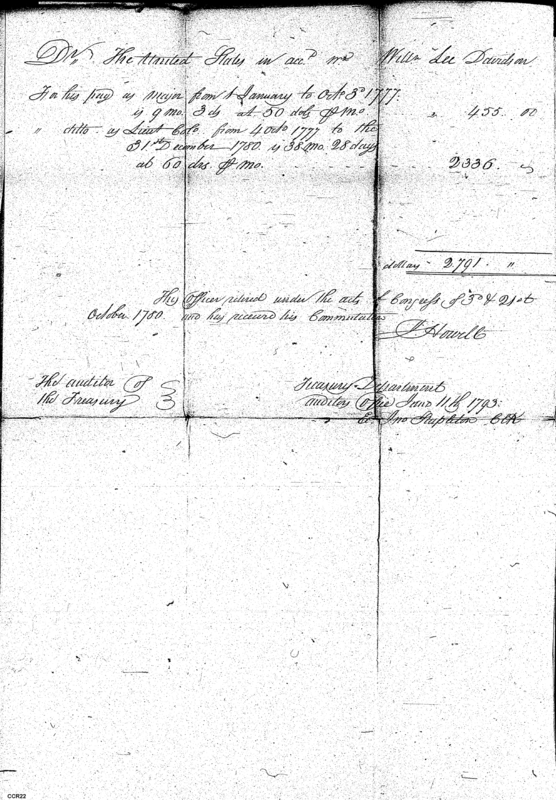 Dr. The United States in acct. with Willm Lee Davidson
For his pay as Major from 1 January to Octo 3d 1777.
is 9 mo. 3 ds at 50 dols ⅌ mo " 455. 00
" ditto as Lieut Colo. from 4 Octo 1777 to the
31st December 1780 is 38 mo. 28 days
at 60 drs. ⅌ mo. 2336. "
dollars 2791. "
This Officer retired under the acts of Congress of 3d & 21st
October 1780. and has received his Commutation
Howell
The auditor of
the Treasury
Treasury Department
auditors Office June 11th 1793.
Jno Stapleton Clk
CCR22